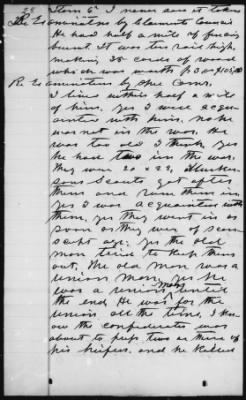 28 Item 6" I never saw it taken
Re Examination by Claimants Council
He had half a mile of fencing
burnt. It was ten rails high,
making 38 cords of wood
which was worth $3 or
Re Examination by Spe Com.
I lived within half a mile
of him. yes I were acqua-
inted with him. no he
was not in the war. he
was too old I think, yes
he had two in the war.
They were 20 & 22,
sons Scouts got after
them and run them in
yes I was acquainted with
them, yes they went in as
soon as they were of con-
script age; yes the old
man tried to keep them
out, The old man was a
union man, yes he
was a union man until
the end. He was for the
union, all the time, I kn-
ow the confederates was
about to press two or three of
his beifers, and he
8